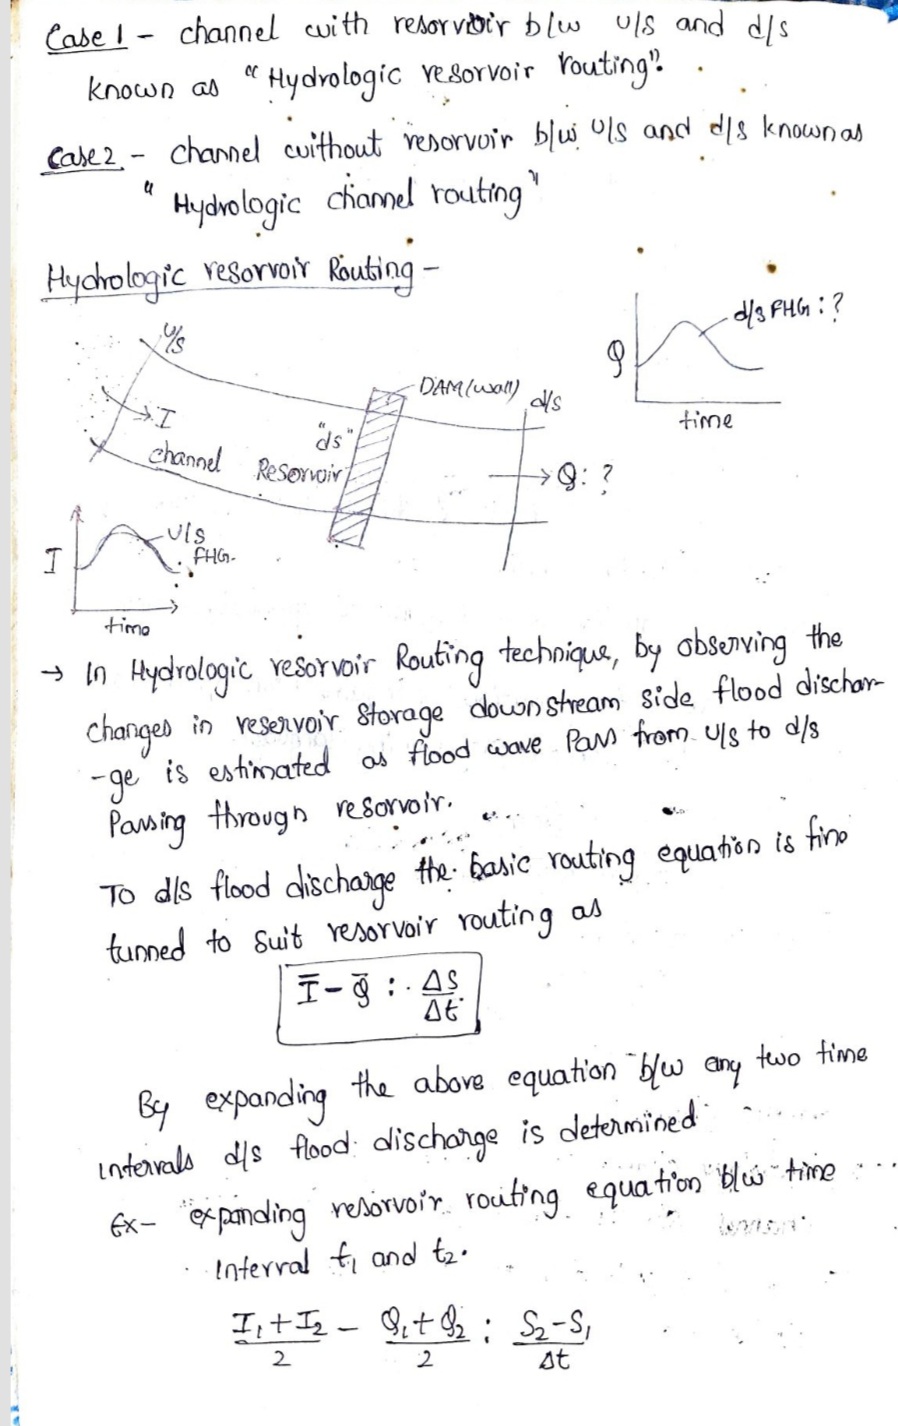 Case 1 - channel with resorvoir b/w u/s and d/s
known as "Hydrologic resorvoir routing".
Case 2 - channel without resorvoir b/w u/s and d/s known as
"Hydrologic channel routing"
Hydrologic resorvoir Routing -
u/s
d/s FHG : ?
Q
time
DAM (wall)
d/s
I
"ds"
channel
Resorvoir
Q : ?
I
u/s
FHG.
time
→ In Hydrologic resorvoir Routing technique, by observing the
changes in reservoir storage downstream side flood dischar-
-ge is estimated as flood wave Pass from u/s to d/s
Passing through resorvoir.
To d/s flood discharge the basic routing equation is fine
tunned to suit resorvoir routing as
Ī - Q̄ : ΔS/Δt
By expanding the above equation b/w any two time
intervals d/s flood discharge is determined
Ex- expanding resorvoir routing equation b/w time
Interval t₁ and t₂.
I₁ + I₂/2 - Q₁ + Q₂/2 : S₂ - S₁/Δt